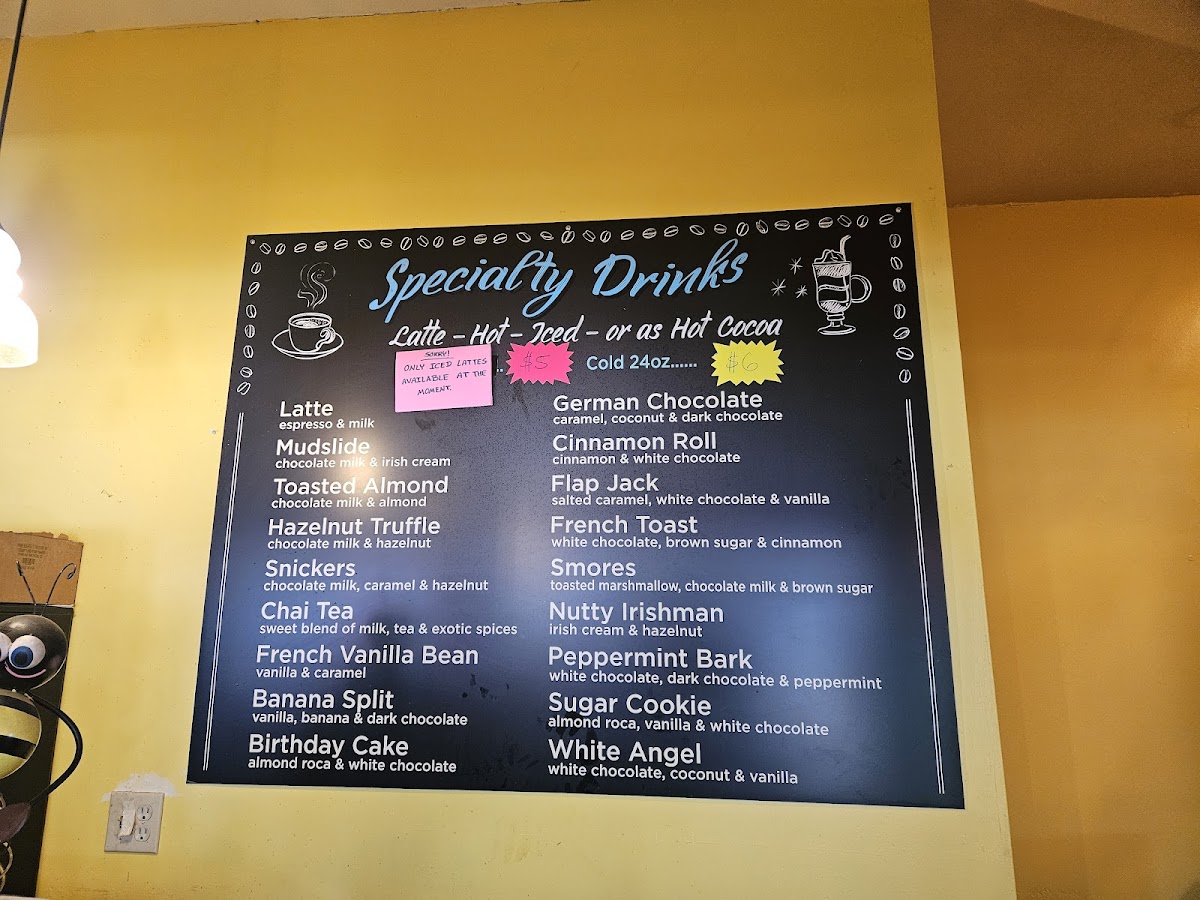 Specialty Drinks
Latte - Hot - Iced - or as Hot Cocoa
SORRY!
ONLY ICED LATTES
AVAILABLE AT THE
MOMENT.
.. $5 Cold 24oz...... $6
Latte
espresso & milk
Mudslide
chocolate milk & irish cream
Toasted Almond
chocolate milk & almond
Hazelnut Truffle
chocolate milk & hazelnut
Snickers
chocolate milk, caramel & hazelnut
Chai Tea
sweet blend of milk, tea & exotic spices
French Vanilla Bean
vanilla & caramel
Banana Split
vanilla, banana & dark chocolate
Birthday Cake
almond roca & white chocolate
German Chocolate
caramel, coconut & dark chocolate
Cinnamon Roll
cinnamon & white chocolate
Flap Jack
salted caramel, white chocolate & vanilla
French Toast
white chocolate, brown sugar & cinnamon
Smores
toasted marshmallow, chocolate milk & brown sugar
Nutty Irishman
irish cream & hazelnut
Peppermint Bark
white chocolate, dark chocolate & peppermint
Sugar Cookie
almond roca, vanilla & white chocolate
White Angel
white chocolate, coconut & vanilla